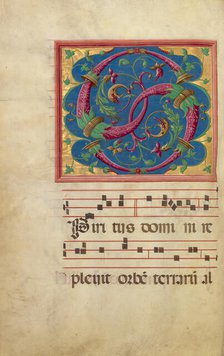 S
Piri tus domi ni re
pleuit orbē terrarū al